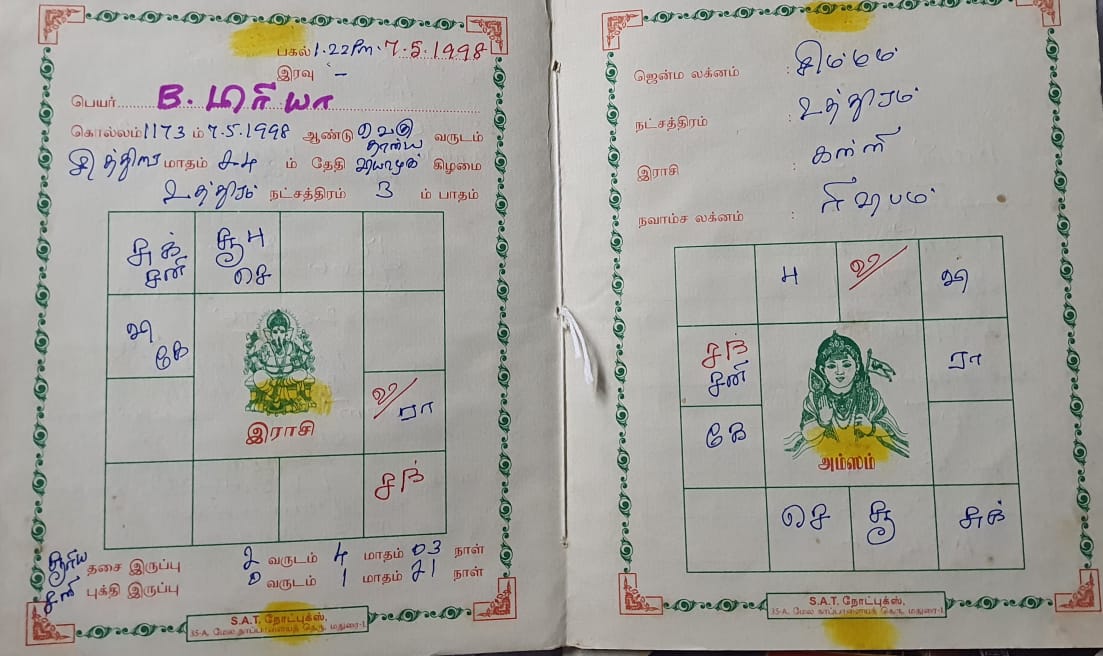 பகல் 1.22 Pm. 7.5.1998
இரவு -
பெயர் B. பிரியா
கொல்லம் 1173 ம் 7.5.1998 ஆண்டு வெகு தான்ய வருடம்
சித்திரை மாதம் 24 ம் தேதி வியாழக் கிழமை
உத்திரம் நட்சத்திரம் 3 ம் பாதம்
சுக் சனி
சூ பு செ
வி கே
இராசி
ல/ ரா
சந்
சூரிய தசை இருப்பு 2 வருடம் 4 மாதம் 03 நாள்
சனி புக்தி இருப்பு 0 வருடம் 1 மாதம் 21 நாள்
S.A.T. நோட்புக்ஸ்,
35-A, மேல காப்பாளையத் தெரு, மதுரை-1
ஜென்ம லக்னம் : சிம்மம்
நட்சத்திரம் : உத்திரம்
இராசி : கன்னி
நவாம்ச லக்னம் : ரிஷபம்
பு
ல/
வி
சந் சனி
ரா
கே
அம்ஸம்
செ
சூ
சுக்
S.A.T. நோட்புக்ஸ்,
35-A, மேல காப்பாளையத் தெரு, மதுரை-1